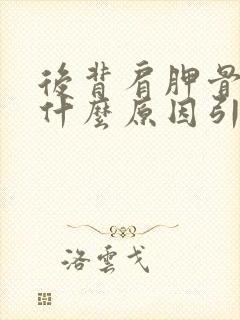 後背肩胛骨
什麼原因引
洛雲戈